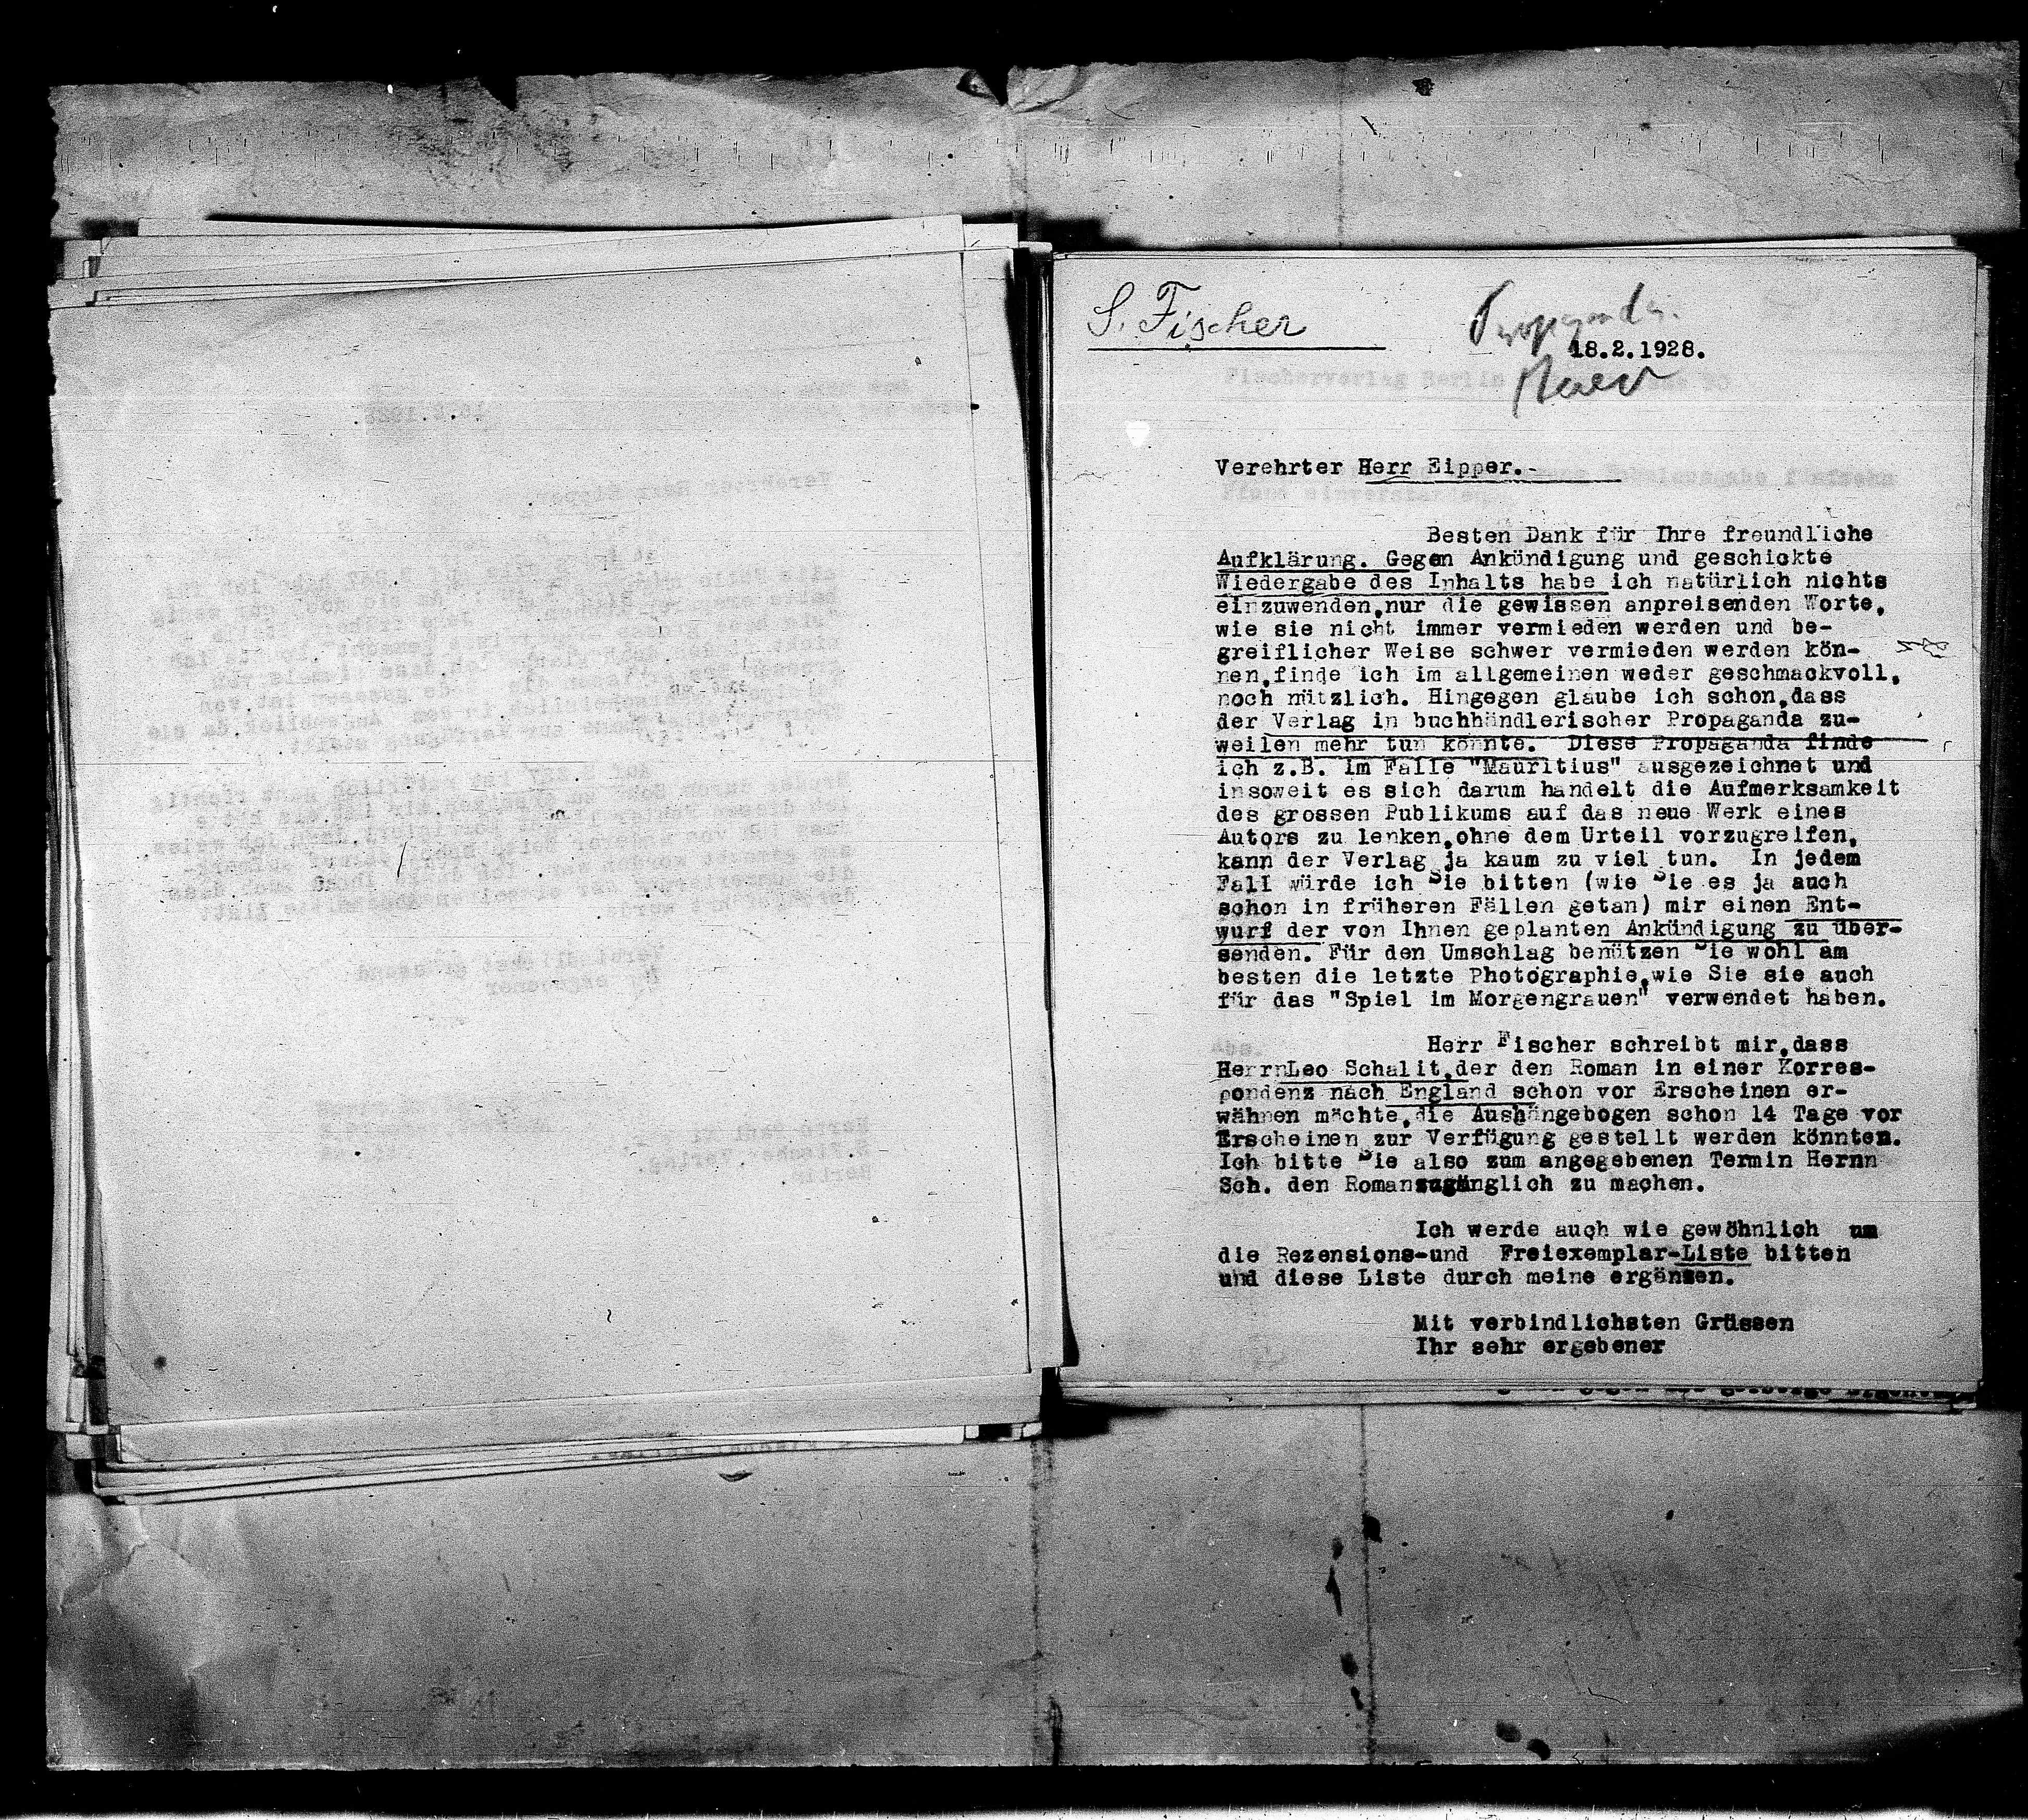 S. Fischer
Propaganda
18.2.1928.
Verehrter Herr Eipper.-
Besten Dank für Ihre freundliche
Aufklärung. Gegen Ankündigung und geschickte
Wiedergabe des Inhalts habe ich natürlich nichts
einzuwenden,nur die gewissen anpreisenden Worte,
wie sie nicht immer vermieden werden und be-
greiflicher Weise schwer vermieden werden kön-
nen,finde ich im allgemeinen weder geschmackvoll,
noch nützlich. Hingegen glaube ich schon,dass
der Verlag in buchhändlerischer Propaganda zu-
weilen mehr tun könnte. Diese Propaganda finde
ich z.B. im Falle "Mauritius" ausgezeichnet und
insoweit es sich darum handelt die Aufmerksamkeit
des grossen Publikums auf das neue Werk eines
Autors zu lenken,ohne dem Urteil vorzugreifen,
kann der Verlag ja kaum zu viel tun. In jedem
Fall würde ich Sie bitten (wie Sie es ja auch
schon in früheren Fällen getan) mir einen Ent-
wurf der von Ihnen geplanten Ankündigung zu über-
senden. Für den Umschlag benützen Sie wohl am
besten die letzte Photographie,wie Sie sie auch
für das "Spiel im Morgengrauen" verwendet haben.
Herr Fischer schreibt mir,dass
HerrnLeo Schalit,der den Roman in einer Korres-
pondenz nach England schon vor Erscheinen er-
wähnen möchte,die Aushängebogen schon 14 Tage vor
Erscheinen zur Verfügung gestellt werden könnten.
Ich bitte Sie also zum angegebenen Termin Hernn
Sch. den Romanzugänglich zu machen.
Ich werde auch wie gewöhnlich um
die Rezensions-und Freiexemplar-Liste bitten
und diese Liste durch meine ergänzen.
Mit verbindlichsten Grüssen
Ihr sehr ergebener